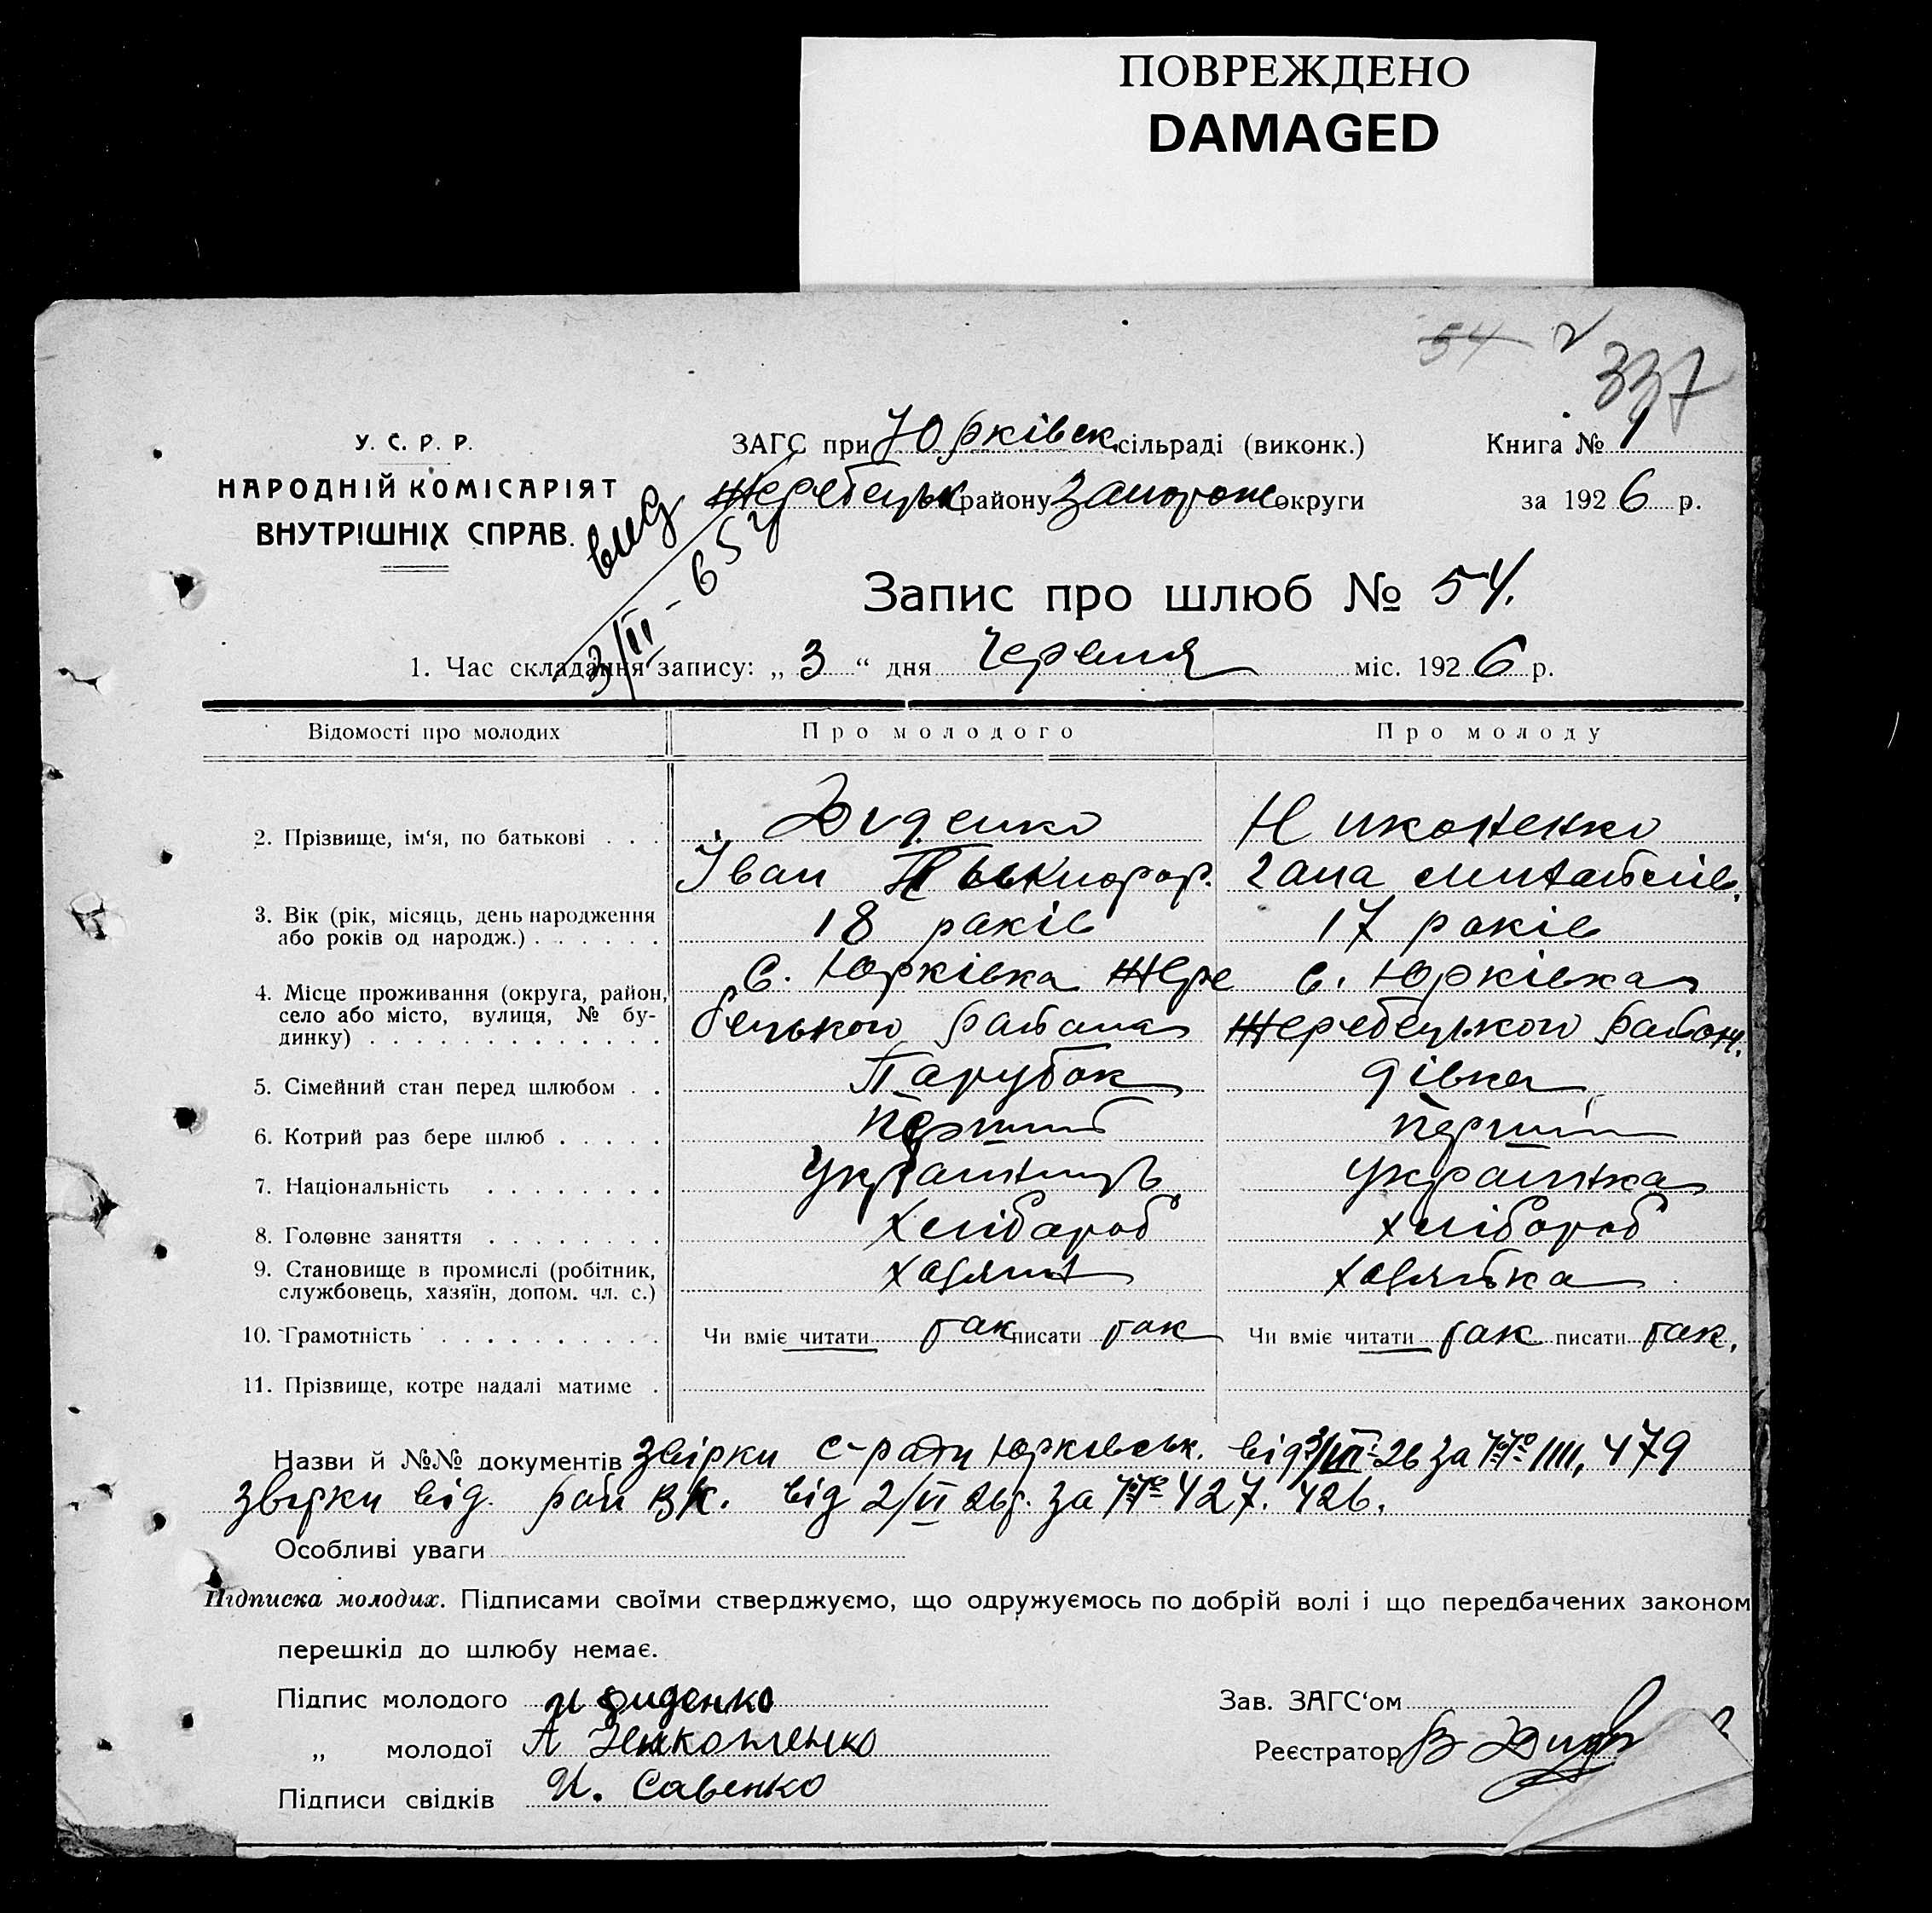 ПОВРЕЖДЕНО
DAMAGED
54
337
У. С. Р. Р.
НАРОДНІЙ КОМІСАРІЯТ
ВНУТРІШНІХ СПРАВ.
ЗАГС при Юрківск сільраді (виконк.)
Книга № 1
Жеребецьк району Запорож округи
за 1926 р.
вид
3/II - 65
Запис про шлюб № 54.
1. Час складання запису: „ 3 “ дня Червня міс. 1926 р.
Відомості про молодих Про молодого Про молоду
2. Прізвище, ім‘я, по батькові . . . Диденко Никоненко
Іван гана
3. Вік (рік, місяць, день народження або років од народж.) . . . . . . 18 років 17 років
4. Місце проживання (округа, район, село або місто, вулиця, № будинку) . . . . . . . . . . . . . с. Юрківка Жере с. Юрківка
бецького района Жеребецького район.
5. Сімейний стан перед шлюбом . . Парубок дівка
6. Котрий раз бере шлюб . . . . . Перший Перший
7. Національність . . . . . . . . Українець Українка
8. Головне заняття . . . . . . . . хлібароб хлібороб
9. Становище в промислі (робітник, службовець, хазяїн, допом. чл. с.) хазяїн хазяйка
10. Грамотність . . . . . . . . . . Чи вміє читати так писати так Чи вміє читати так писати так.
11. Прізвище, котре надалі матиме .
Назви й №№ документів Звірки с-ради Юрковськ. від 3/VI-26 за №№ 1111, 479
Звірки від. рай ВК. від 2/VI 26р. за №№ 427. 426.
Особливі уваги
Підписка молодих. Підписами своїми стверджуємо, що одружуємось по добрій волі і що передбачених законом
перешкід до шлюбу немає.
Підпис молодого и диденко
Зав. ЗАГС‘ом
„ молодої А Никоненко
Реєстратор В
Підписи свідків И. Савенко